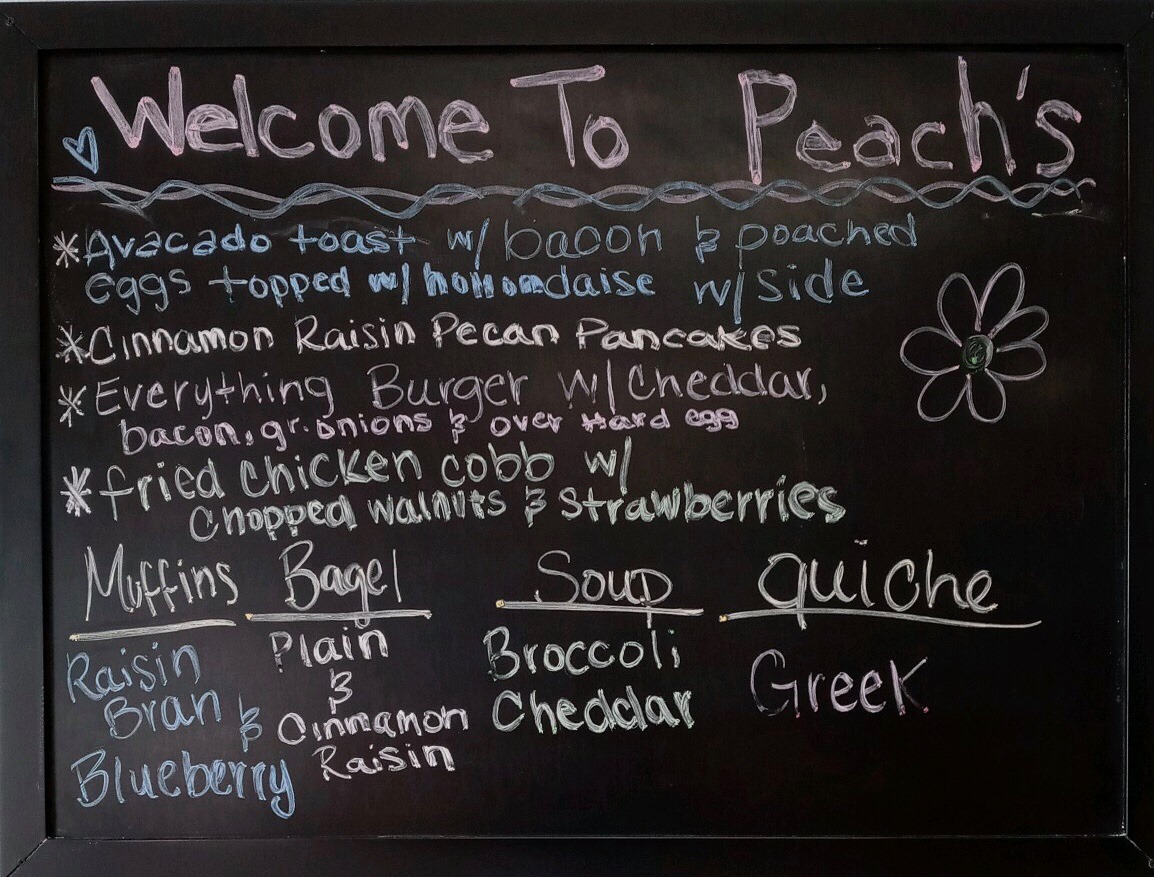 Welcome To Peach's
*Avacado toast w/ bacon & poached
eggs topped w/ hollondaise w/ side
*Cinnamon Raisin Pecan Pancakes
*Everything Burger w/ Cheddar,
bacon, gr. onions & over Hard egg
*fried chicken cobb w/
Chopped walnuts & Strawberries
Muffins
Raisin
Bran &
Blueberry
Bagel
Plain
&
Cinnamon
Raisin
Soup
Broccoli
Cheddar
quiche
Greek